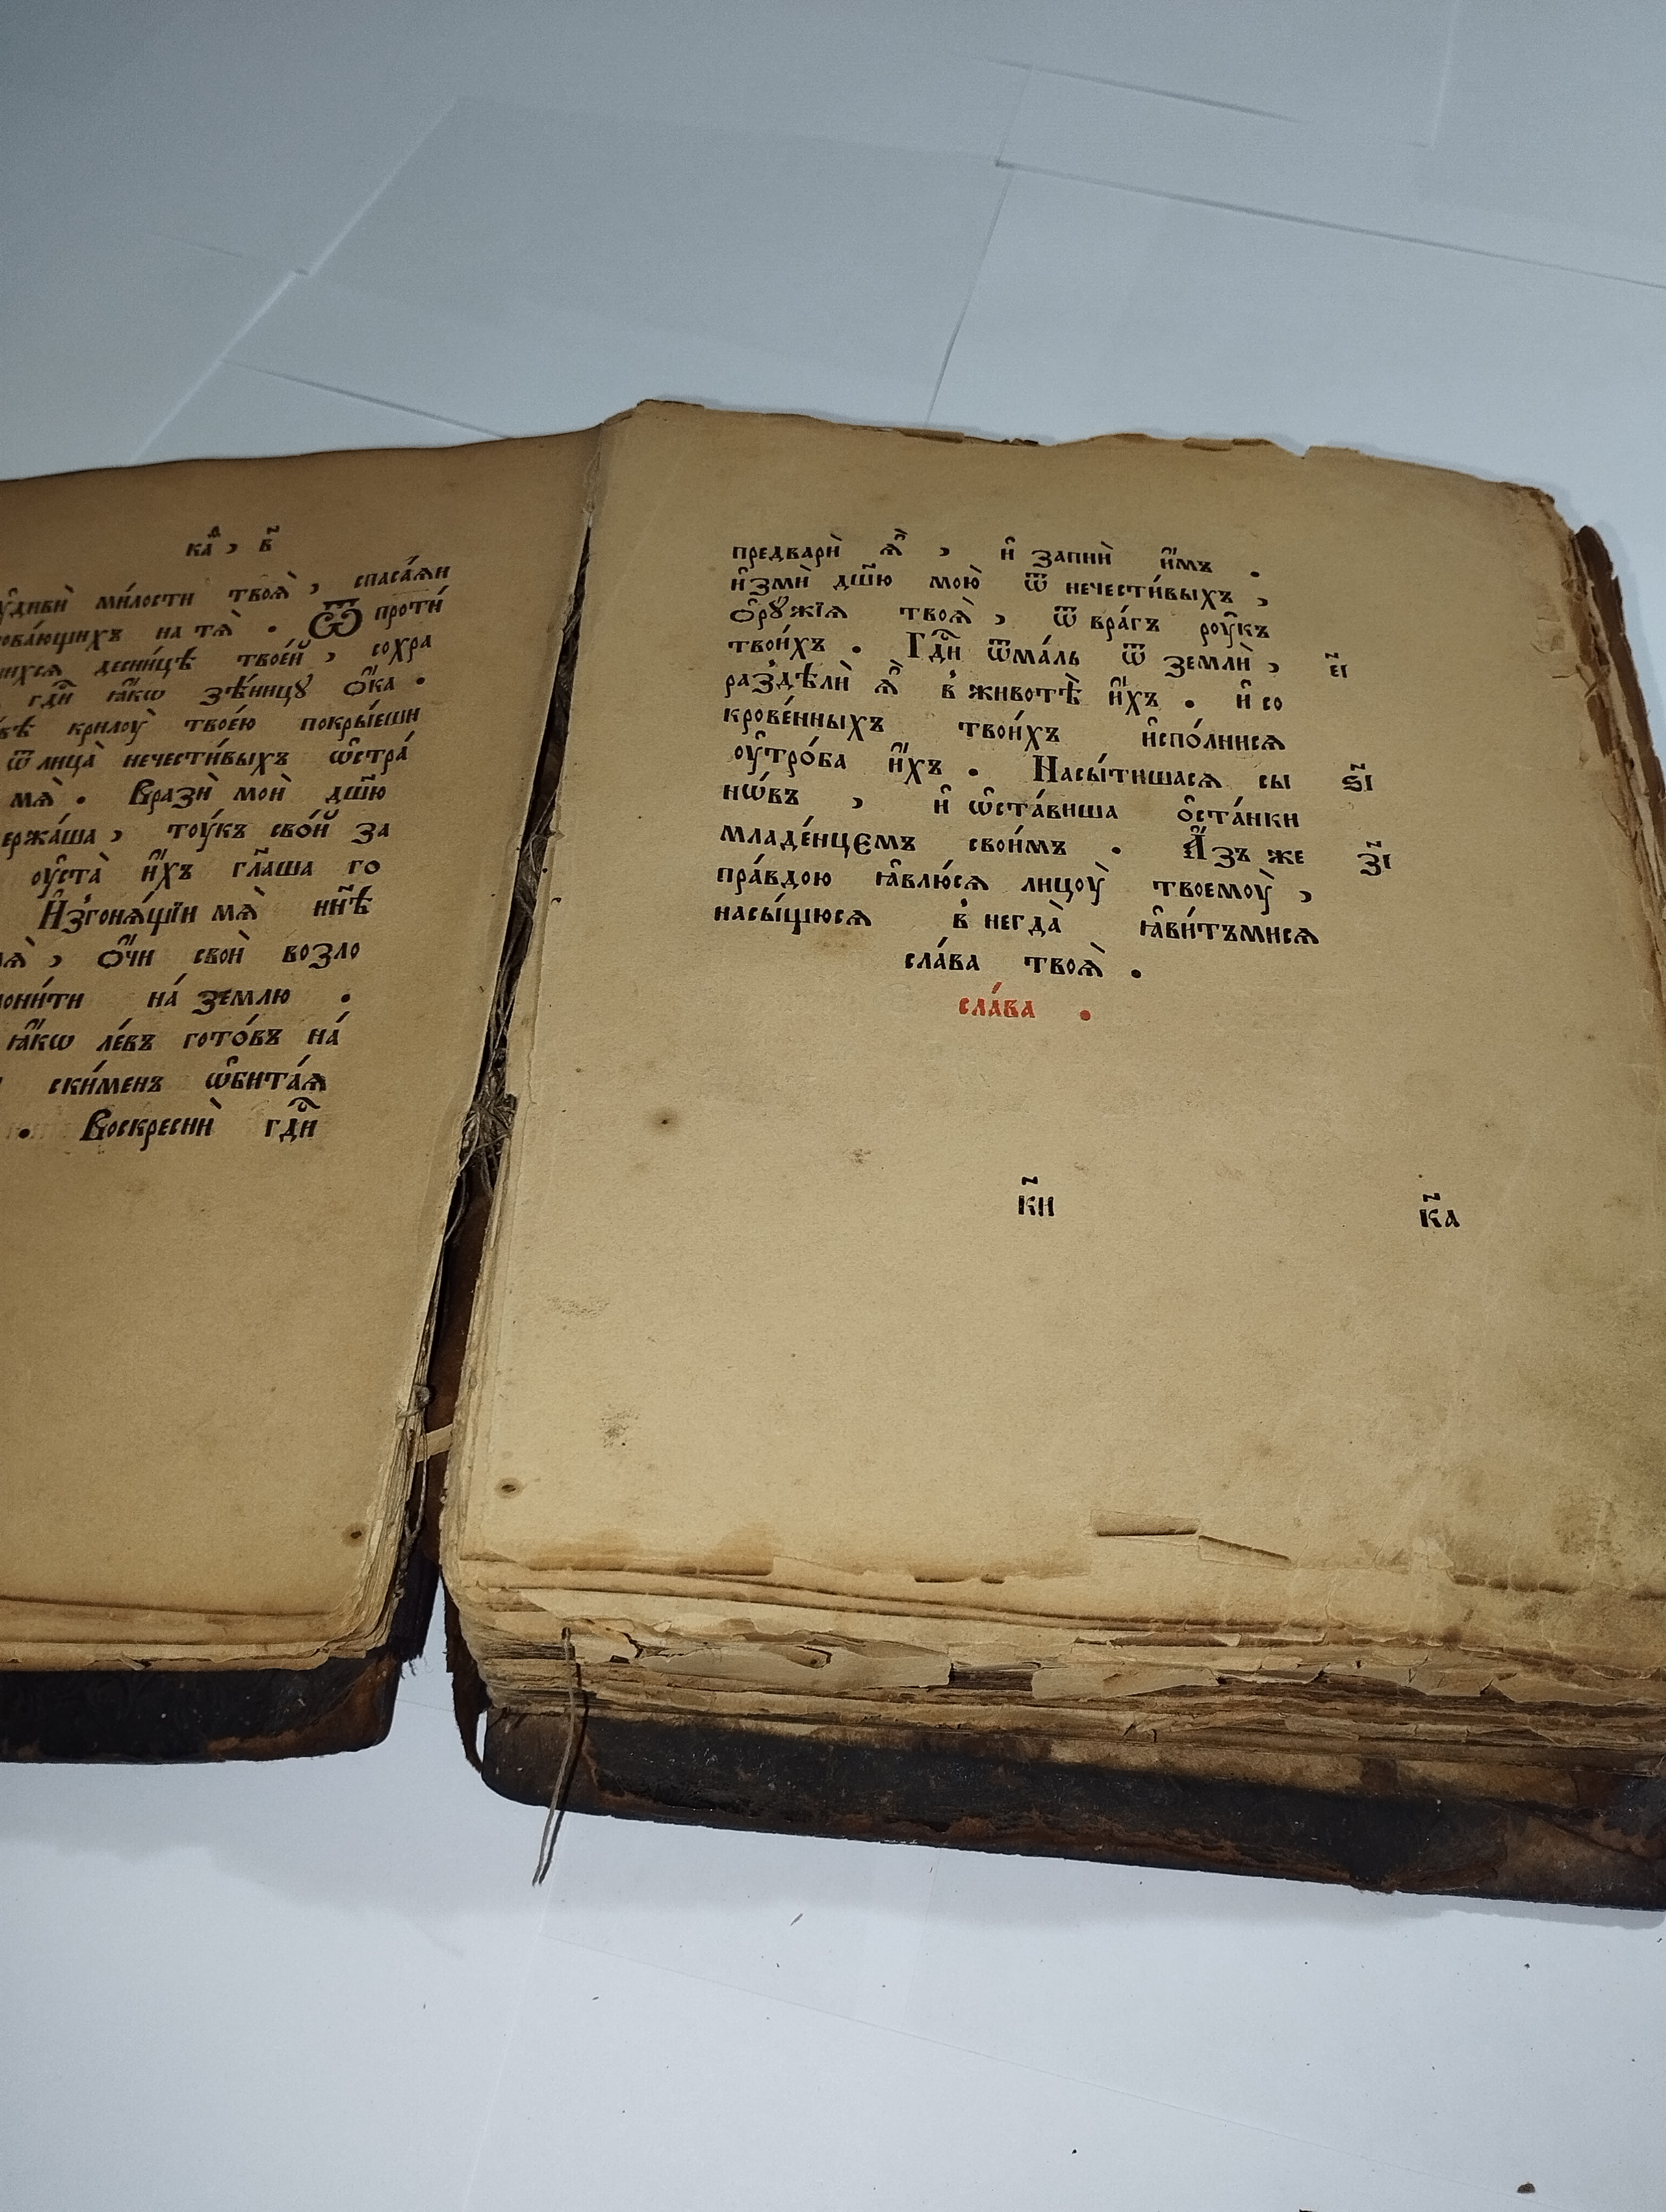 ка́д , в҃
оу҆дивѝ ми́лости твоѧ̀ , спаса́ѧи
на тѧ̀ . Ѿ проти́
десни́цѣ твое́й , сохра
гдⷭ҇и ꙗ҆́кѡ зѣ́ницꙋ ѻ҆́ка .
крилоу̀ твое́ю покры́еши
ѿ лица̀ нечести́выхъ ѡ҆стра́
мѧ̀ . Вразѝ моѝ дш҃ю
тоу́къ сво́й за
оу҆ста̀ и҆́хъ гл҃аша го
И҆згонѧ́щїи мѧ̀ нн҃ѣ
, ѻ҆́чи своѝ возло
на́ землю .
ꙗ҆́кѡ ле́въ гото́въ на́
ски́менъ ѡ҆бита́ѧ
. Воскреснѝ гдⷭ҇и
предварѝ ѧ҆̀ , и҆ запнѝ и҆́мъ .
и҆змѝ дш҃ю мою̀ ѿ нечести́выхъ ,
ѻ҆рꙋ́жїѧ твоѧ̀ , ѿ вра́гъ роу҆къ
твои́хъ . Гдⷭ҇и ѿма́лъ ѿ землѝ , е҃і
раздѣлѝ ѧ҆̀ в животѣ̀ и҆́хъ . и҆ со
крове́нныхъ твои́хъ и҆спо́лнисѧ
оу҆тро́ба и҆́хъ . Насы́тишасѧ сы ѕ҃і
нѡ́въ , и҆ ѡ҆ста́виша ѻ҆ста́нки
младе́нцемъ свои́мъ . А҆́зъ же з҃і
пра́вдою ꙗ҆влю́сѧ лицоу̀ твоемоу̀ ,
насы́щюсѧ в негда̀ ꙗ҆ви́тъмисѧ
сла́ва твоѧ̀ .
сла́ва .
к҃и к҃а